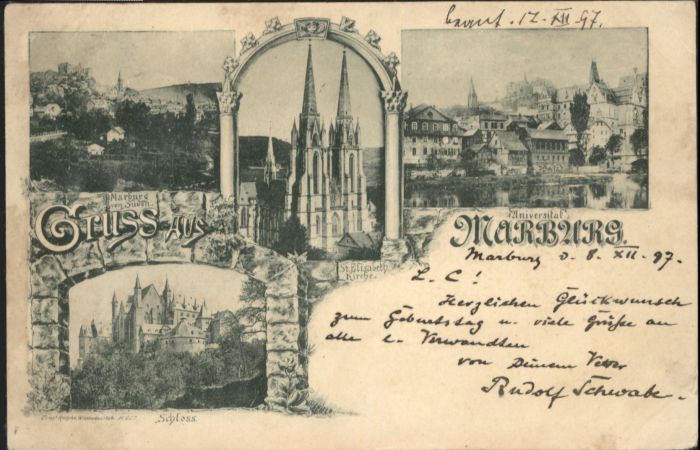 beant. 12. XII 97.
Marburg
von Süden.
Gruss aus
St. Elisabeth
Kirche.
Universität.
Marburg.
Schloss.
Marburg d. 8. XII. 97.
L. C!
Herzlichen Glückwunsch
zum Geburtstag u. viele Grüße an
alle l. Verwandten
von Deinem Vetter
Rudolf Schwabe.